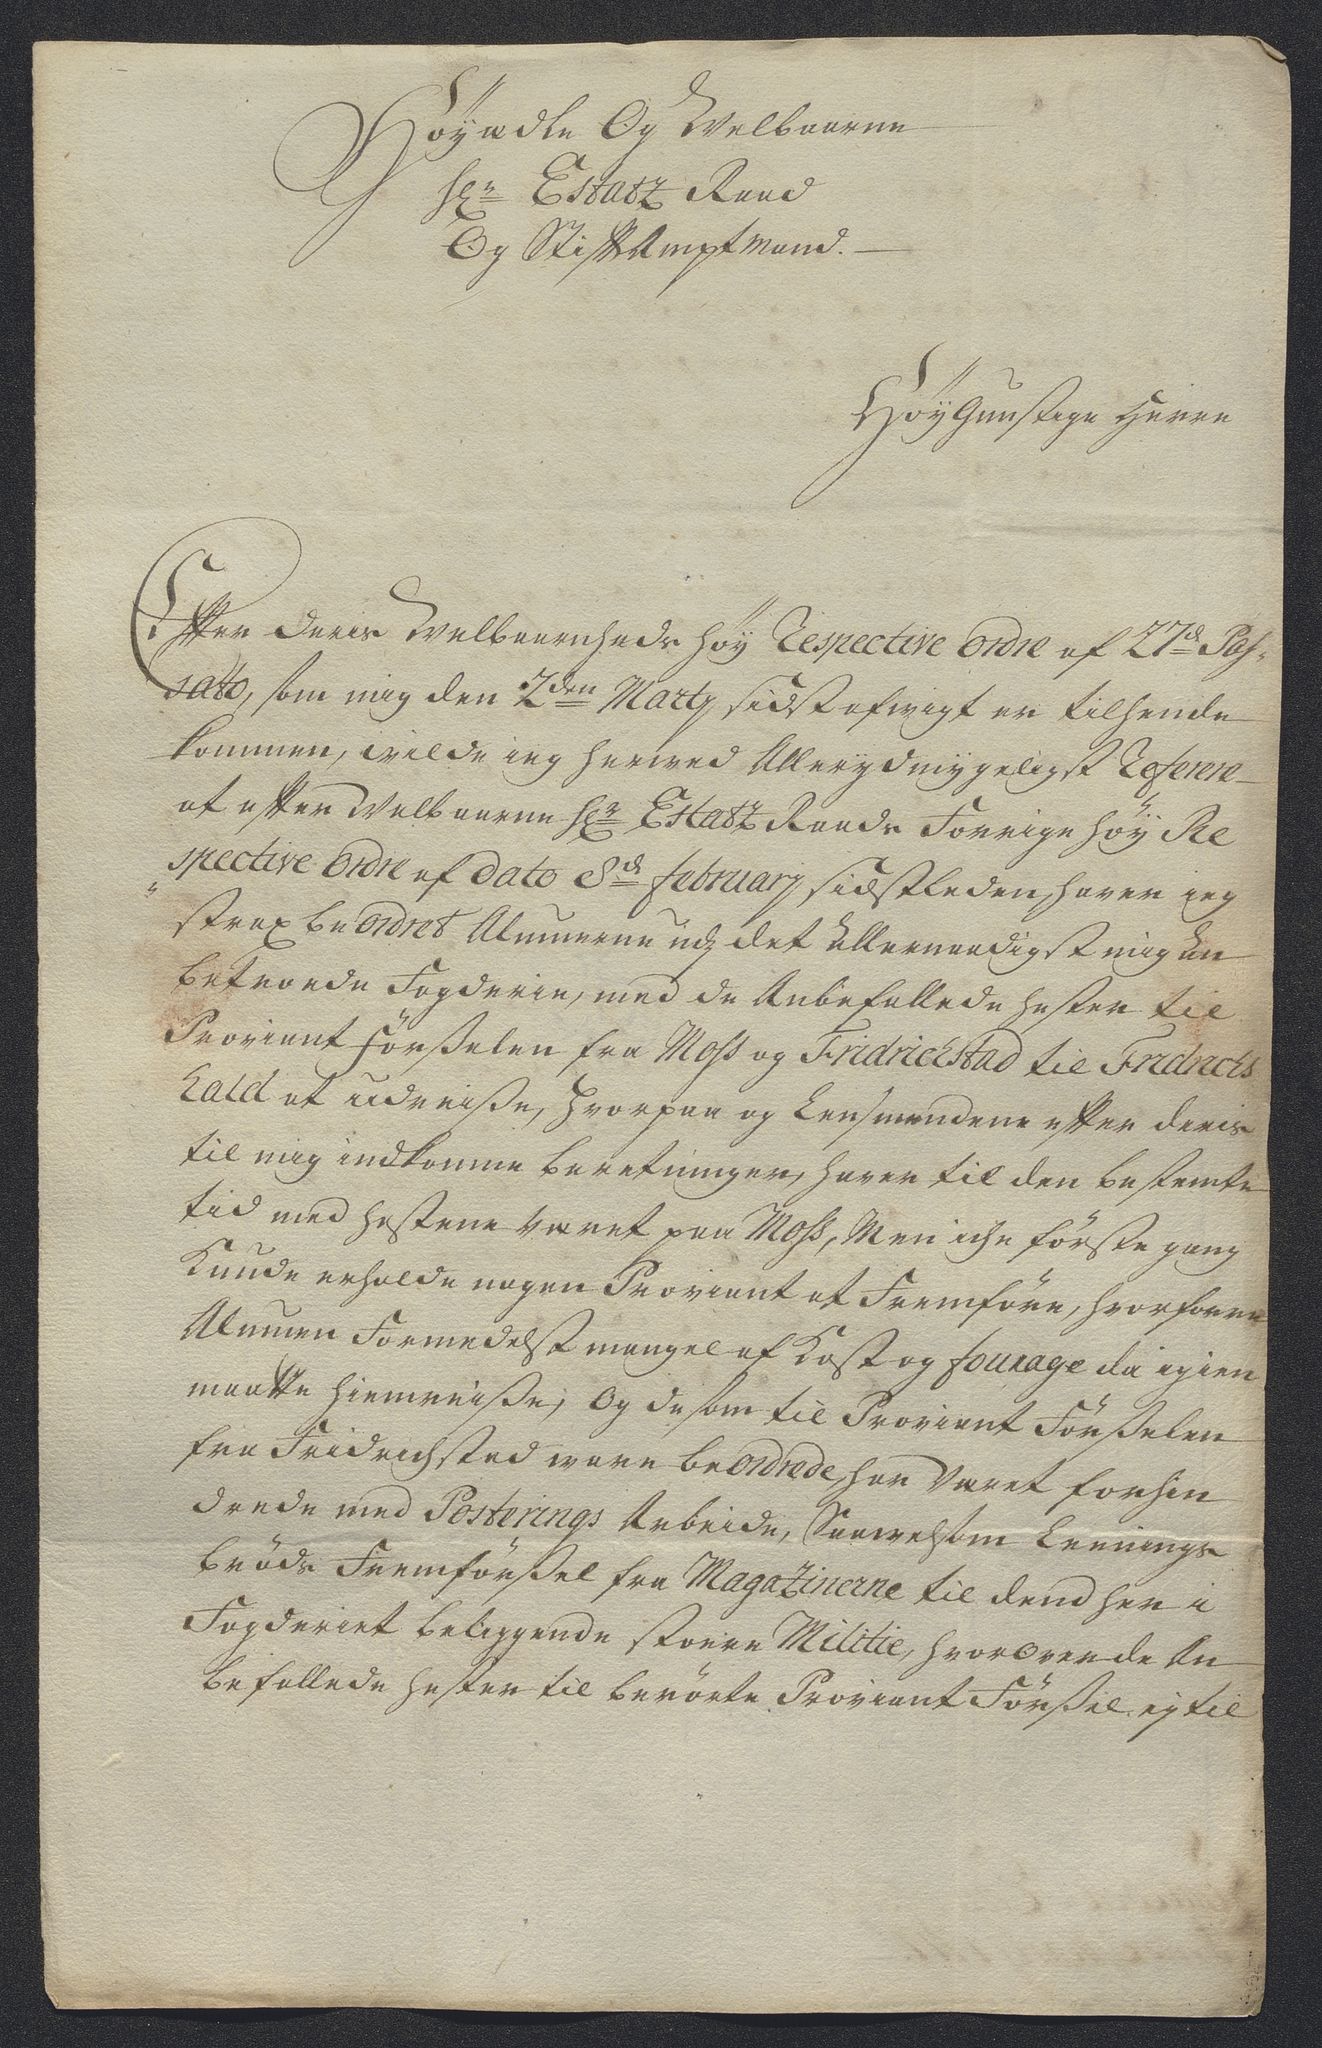 Höyædle Og Welbaarne
Hr Estatz Raad
Og Stifft Ampt Mand.
HöyGunstige Herre
Effter Deris Welbaarnheds höy Respective Ordre af 27de Pas-
sato, som mig den 2den Marty sidst afvigt er tilhende
kommen, vilde ieg herved Allerydmygeligst Referere
at effter Welbaarne Hr Estatz Raads Forrige höy Re
spective Ordre af Dato 8de February sidstleden, haver ieg
strax beordret Almuerne udj det Allernaadigst mig An
betroede Fogderie, med de Anbefallede hester til
Proviant Förselen fra Moss og Fridrichstad til Fridrichs
hald at udreise, hvorpaa og Lensmendene effter deris
til mig indkomne beretninger, haver til den bestemte
tid med hestene været paa Moss, Men iche förste gang
Kunde erholde nogen Proviant at Fremföre, hvorforre
Almuen Formedelst mangel af Kost og fourage da igien
maatte hiemreise, Og de som til Proviant Förselen
fra Fridrichstad ware beordrede, har været forhin
drede med Posterings Arbeide, Saavelsom Levnings
bröds Fremförsel fra Magazinerne til dend her i
Fogderiet beliggende store Militie, hvorover de An
befallede hester til berörte Proviant Försel ey til